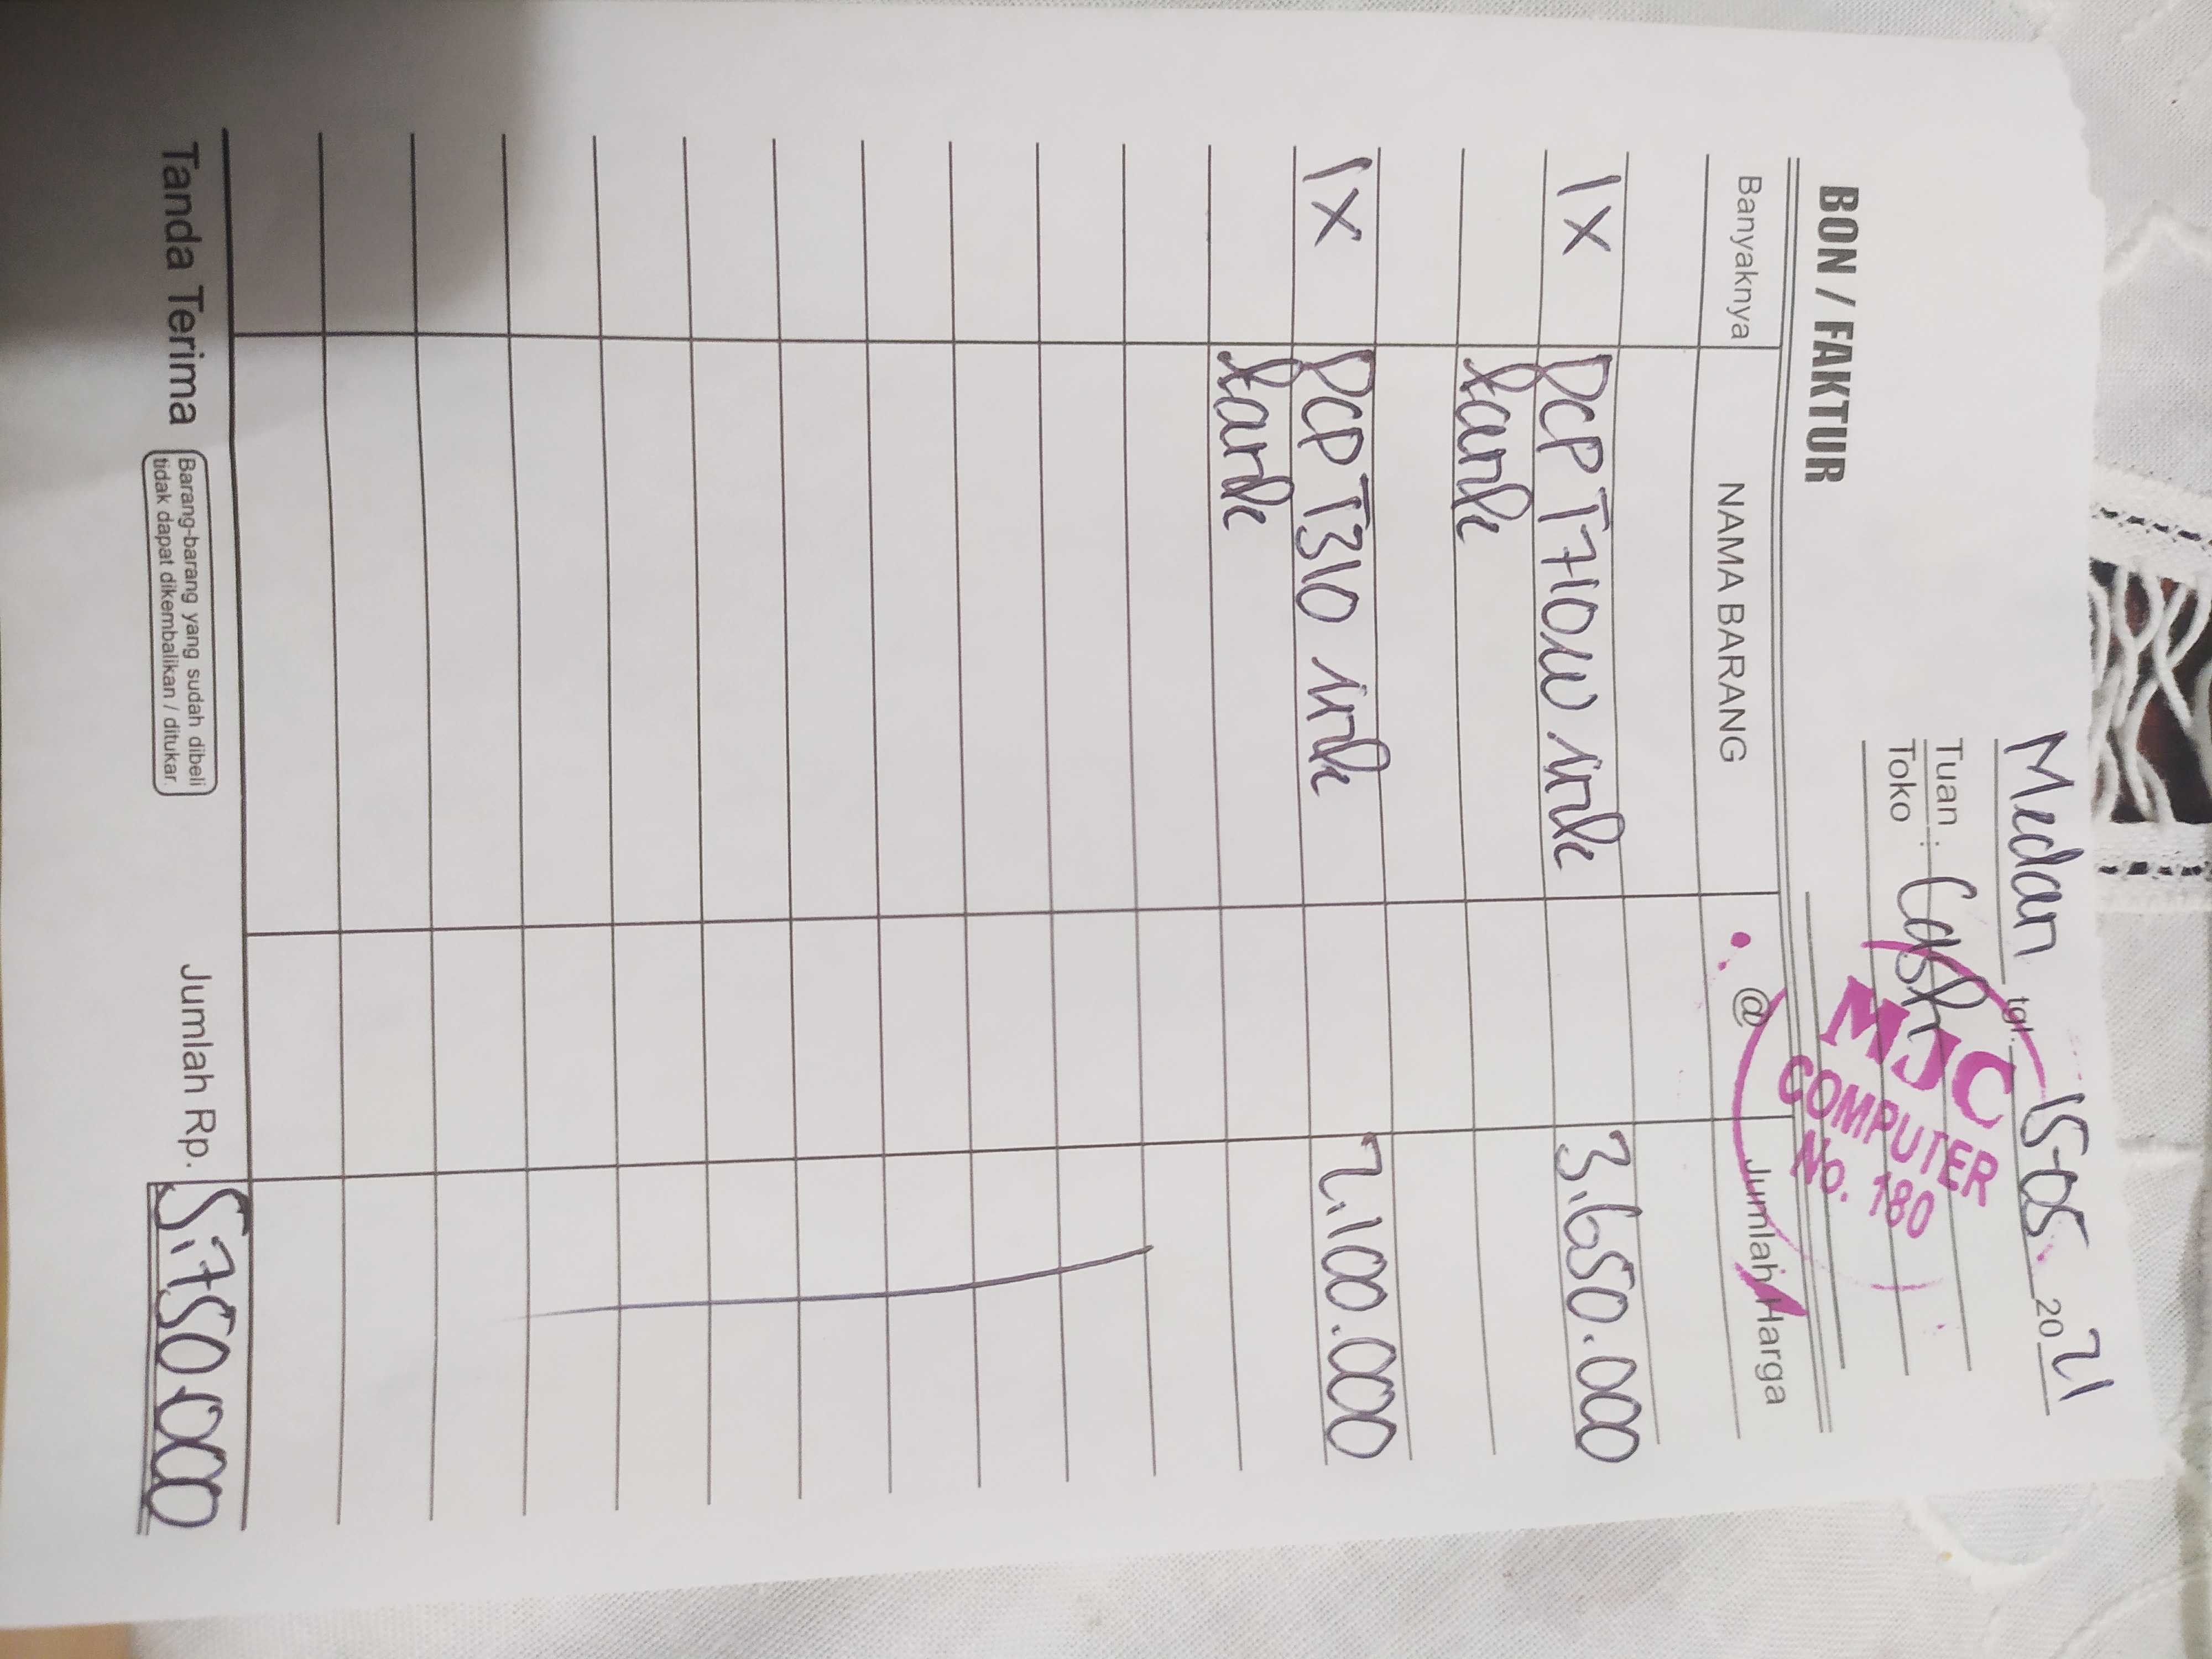 Medan tgl. 15-05 2021
Tuan : Cash
Toko
MJC
COMPUTER
No. 180
BON / FAKTUR
Banyaknya NAMA BARANG @ Jumlah Harga
1x DCP T710W ink 3.650.000
tank
1x DCP T310 ink 2.100.000
tank
Tanda Terima Barang-barang yang sudah dibeli
tidak dapat dikembalikan / ditukar
Jumlah Rp. 5.750.000